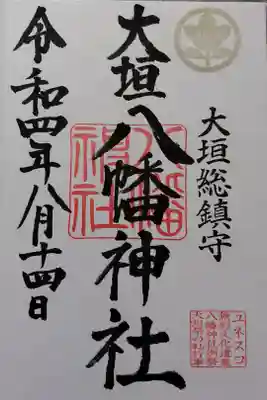 大垣総鎮守
大垣八幡神社
八幡
神社
令和四年八月十四日
ユネスコ
無形文化遺産